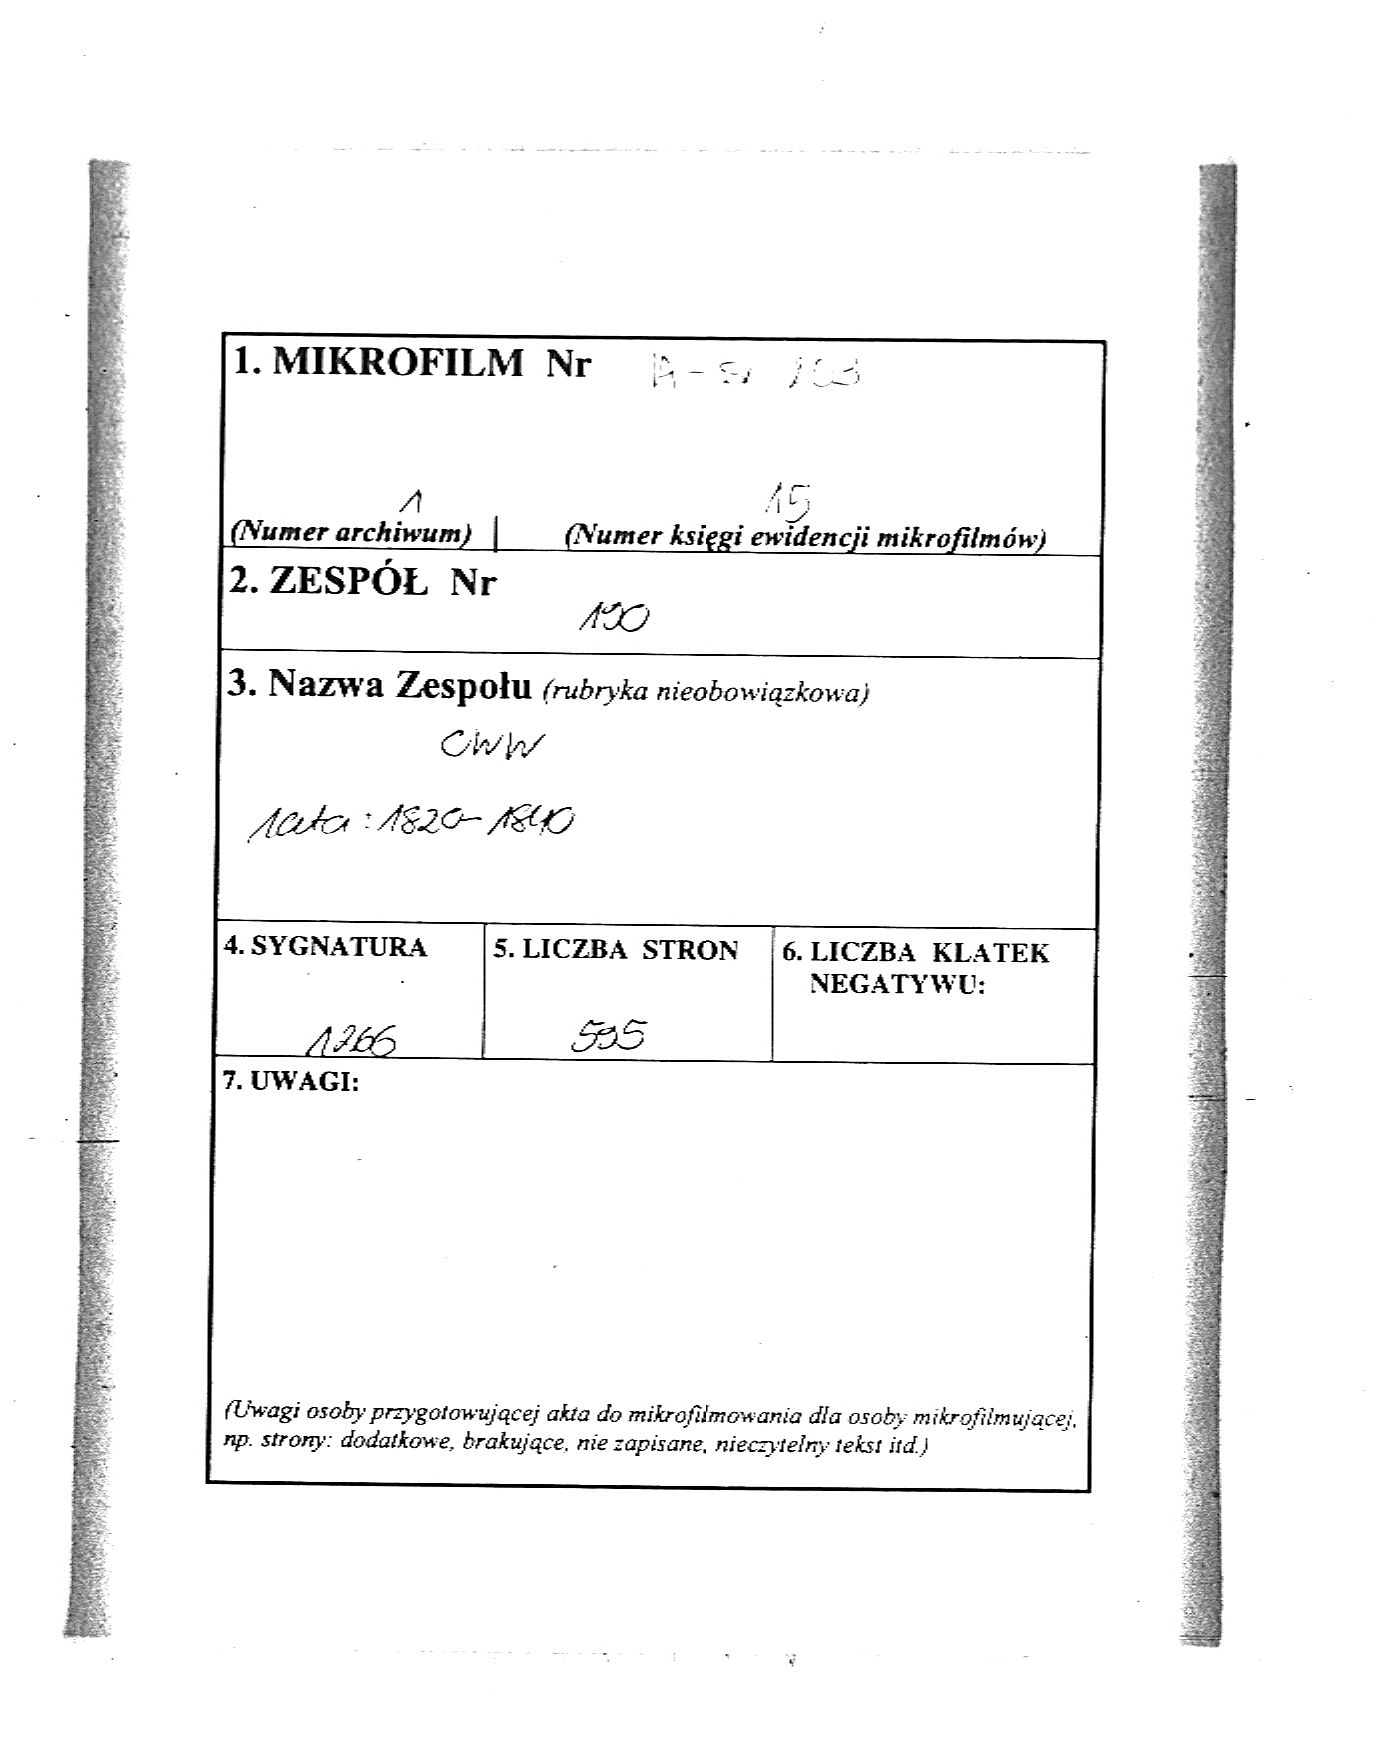 1. MIKROFILM Nr
1 15
(Numer archiwum) | (Numer księgi ewidencji mikrofilmów)
2. ZESPÓŁ Nr
190
3. Nazwa Zespołu (rubryka nieobowiązkowa)
CWW
lata: 1820-1840
4. SYGNATURA
1266
5. LICZBA STRON
595
6. LICZBA KLATEK
NEGATYWU:
7. UWAGI:
(Uwagi osoby przygotowującej akta do mikrofilmowania dla osoby mikrofilmującej,
np. strony: dodatkowe, brakujące, nie zapisane, nieczytelny tekst itd.)